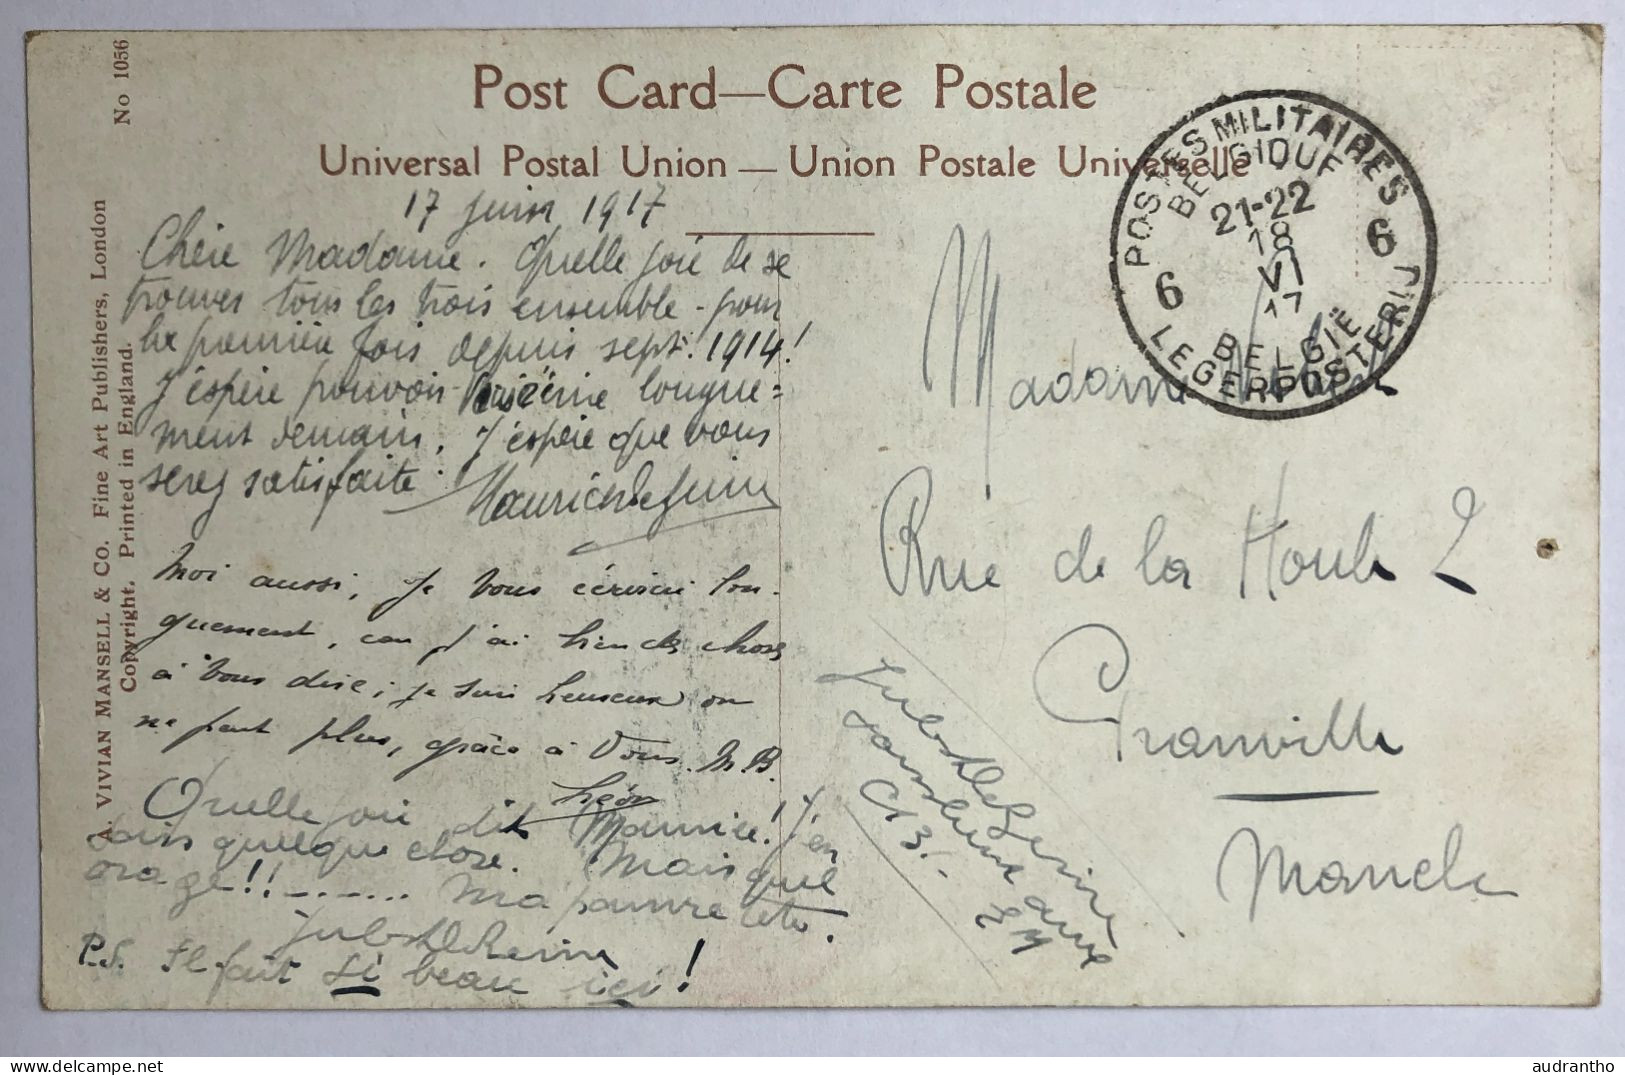 Post Card—Carte Postale
Universal Postal Union — Union Postale Universelle
No 1056
A. VIVIAN MANSELL & CO. Fine Art Publishers, London
Copyright. Printed in England.
POSTES MILITAIRES
BELGIQUE
21-22
18
VI
17
6 6
BELGIË
LEGERPOSTERIJ
17 juin 1917
Chère Madame. Quelle joie de se
trouver tous les trois ensemble - pour
la première fois depuis sept. 1914!
J'espère pouvoir écrire longue=
ment demain. J'espère que vous
serez satisfaite.
Moi aussi, je vous écrirai lon-
guement, car j'ai bien des choses
à vous dire; je suis heureux on
ne peut plus, grâce à Vous. N.B.
Léon
Quelle joie dit Maurice! J'en
sais quelque chose. Mais quel
orage!!------- Ma pauvre tête.
P.S. Il fait si beau ici!
Madame
Rue de la Houle 2
Granville
Manche